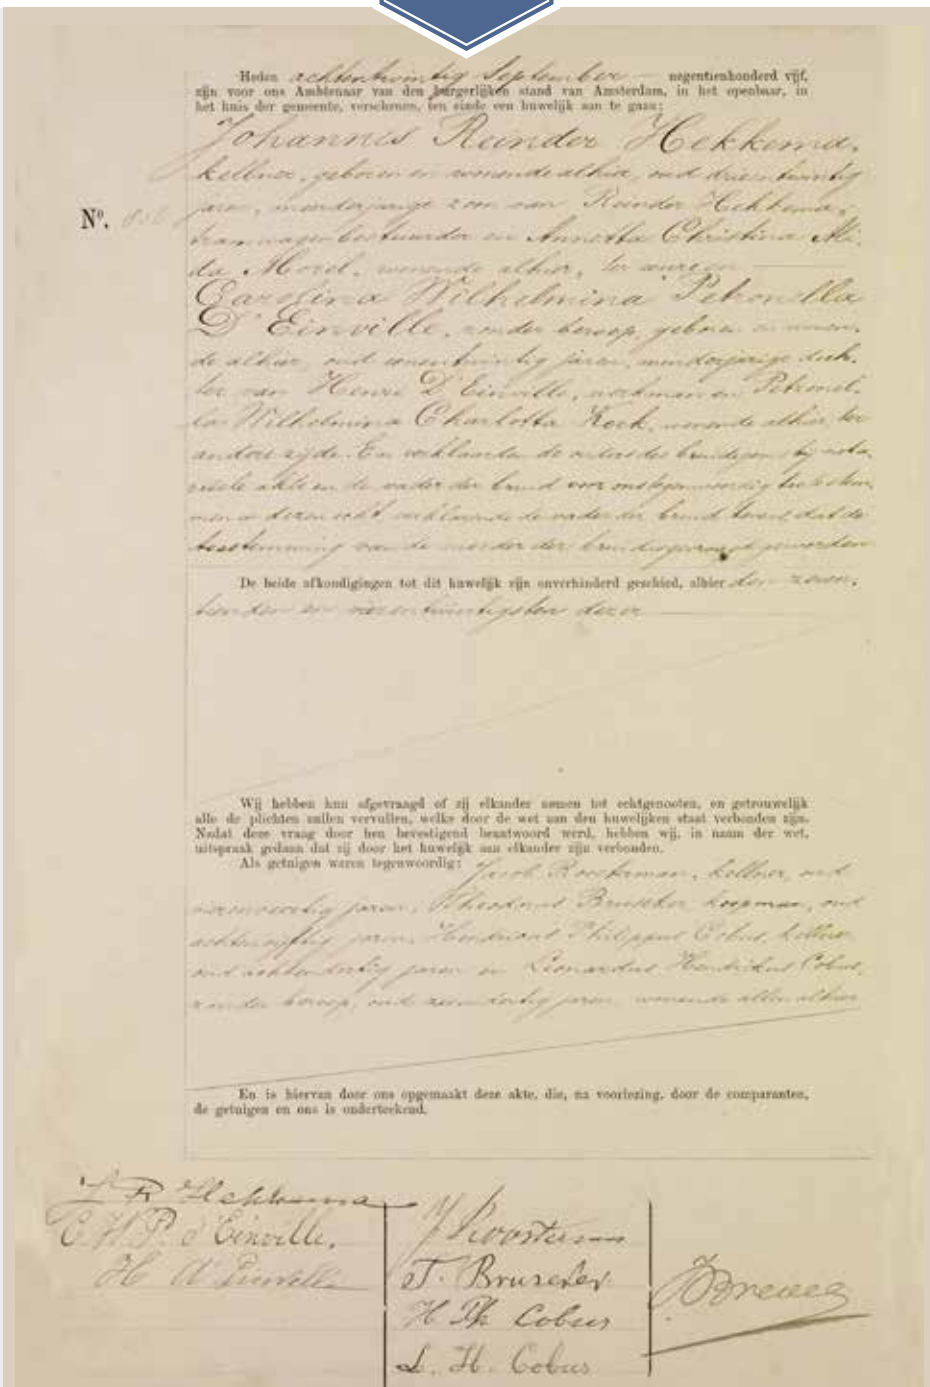 Heden achtentwintig September negentienhonderd vijf,
zijn voor ons Ambtenaar van den burgerlijken stand van Amsterdam, in het openbaar, in
het huis der gemeente, verschenen, ten einde een huwelijk aan te gaan:
Johannes Reinder Hekkema,
kellner, geboren en wonende alhier, oud drieentwintig
Nº.
jaren, minderjarige zoon van Reinder Hekkema,
tramwagenbestuurder en Annetta Christina Ali-
da Morel, wonende alhier, ter eenre en
Carolina Wilhelmina Petronella
D'Einville, zonder beroep, geboren en wonen-
de alhier, oud eenentwintig jaren, minderjarige doch-
ter van Henri D'Einville, werkman en Petronel-
la Wilhelmina Charlotta Kock, wonende alhier, ter
andere zijde. En verklaarden de ouders des bruidegoms bij nota-
riele akte en de vader der bruid voor ons tegenwoordig toe te stem-
men in dezen echt verklarende de vader der bruid tevens dat de
toestemming van de moeder der bruid gevraagd geworden
De beide afkondigingen tot dit huwelijk zijn onverhinderd geschied, alhier den zeven-
tienden en vierentwintigsten dezer
Wij hebben hun afgevraagd of zij elkander nemen tot echtgenooten, en getrouwelijk
alle de plichten zullen vervullen, welke door de wet aan den huwelijken staat verbonden zijn.
Nadat deze vraag door hen bevestigend beantwoord werd, hebben wij, in naam der wet,
uitspraak gedaan dat zij door het huwelijk aan elkander zijn verbonden.
Als getuigen waren tegenwoordig: Jacob Roosterman, kellner, oud
jaren, Theodorus Bruseker, koopman, oud
achtenvijftig jaren, Hendricus Philippus Cobus, kellner
oud achtendertig jaren en Leonardus Hendrikus Cobus,
zonder beroep, oud jaren, wonende allen alhier
En is hiervan door ons opgemaakt deze akte, die, na voorlezing, door de comparanten,
de getuigen en ons is onderteekend.
J R Hekkema
C. W. P. d'Einville.
H d'Einville
J Roosterman
T. Bruseker
H Ph Cobus
L. H. Cobus